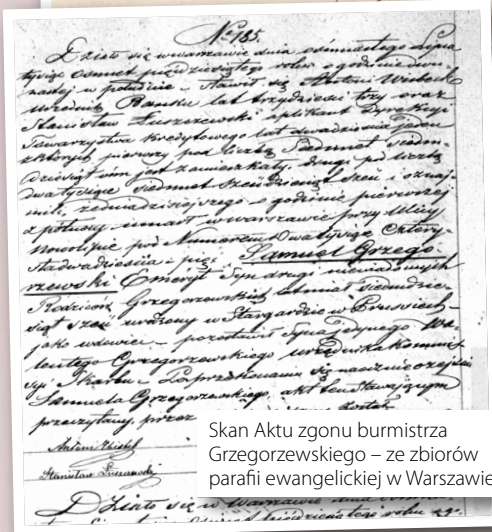 No 185.
Działo się w Warszawie dnia ósmnastego Lipca
tysiąc osmset pięćdziesiątego roku o godzinie dwu-
nastej w południe – Stawił się Antoni
urzędnik Banku lat trzydzieści trzy oraz
Stanisław Łuszczewski aplikant Dyrekcyi
Towarzystwa Kredytowego lat dwadzieścia jeden
z których pierwszy pod liczbą Siedmset siedm-
dziesiąt ośm jest zamieszkały, drugi pod liczbą
dwa tysiące siedmset sześćdziesiąt sześć i oznaj-
mili, że dniu dzisiejszego o godzinie pierwszej
z północy umarł w Warszawie przy Ulicy
Nowolipie pod Numerem Dwa tysiące Cztery-
sta dwadzieścia pięć Samuel Grzego-
rzewski Emeryt Syn drugi niewiadomych
Rodziców Grzegorzewskich lat miał siedmdzie-
siąt sześć urodzony w Stargardzie w Prusiech
jako wdowiec – pozostawił Syna jedynego Wa-
lentego Grzegorzewskiego urzędnika Kommis-
syi Skarbu – Po przekonaniu się naocznie o zejściu
Samuela Grzegorzewskiego, akt ten stawającym
przeczytany, przez
Antoni
Stanisław Łuszczewski
Działo się w Warszawie dnia
roku
Skan Aktu zgonu burmistrza
Grzegorzewskiego – ze zbiorów
parafii ewangelickiej w Warszawie